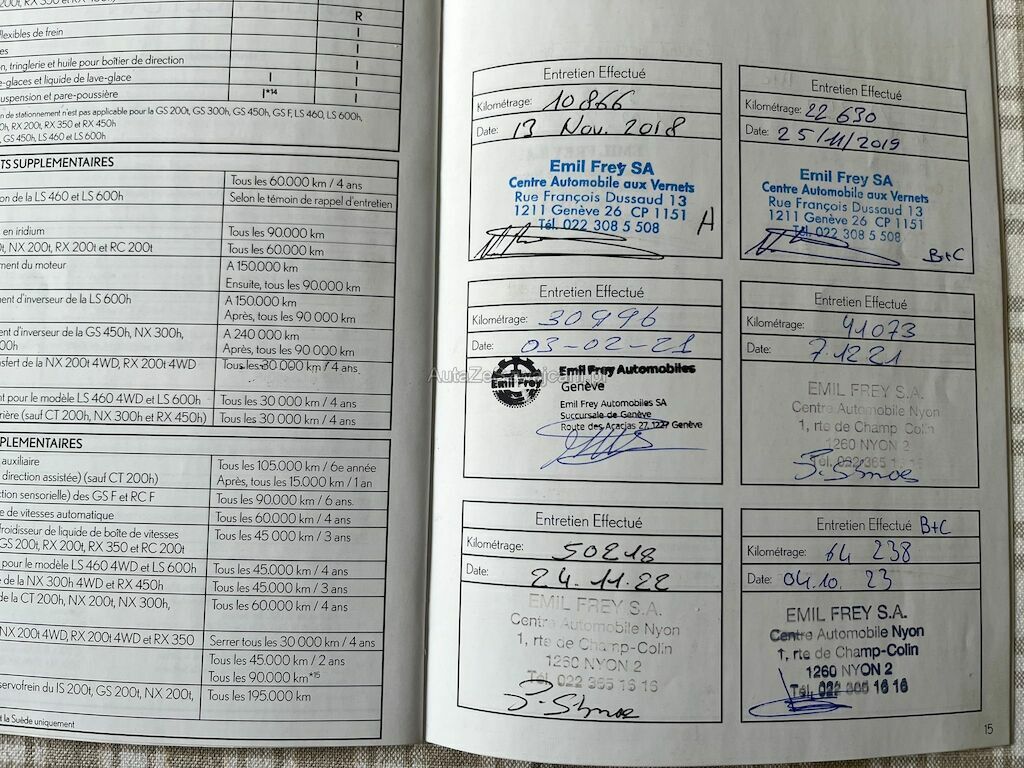 R
I
flexibles de frein
I
I
n, tringlerie et huile pour boîtier de direction
I
e-glaces et liquide de lave-glace
I
I
suspension et pare-poussière
I*14
I
n de stationnement n'est pas applicable pour la GS 200t, GS 300h, GS 450h, GS F, LS 460, LS 600h,
0h, RX 200t, RX 350 et RX 450h
, GS 450h, LS 460 et LS 600h
TS SUPPLEMENTAIRES
Tous les 60.000 km / 4 ans
on de la LS 460 et LS 600h
Selon le témoin de rappel d'entretien
en iridium
Tous les 90.000 km
0t, NX 200t, RX 200t et RC 200t
Tous les 60.000 km
ment du moteur
A 150.000 km
Ensuite, tous les 90.000 km
ent d'inverseur de la LS 600h
A 150.000 km
Après, tous les 90 000 km
ent d'inverseur de la GS 450h, NX 300h,
00h
A 240 000 km
Après, tous les 90 000 km
nsfert de la NX 200t 4WD, RX 200t 4WD
Tous les 30 000 km / 4 ans
nt pour le modèle LS 460 4WD et LS 600h
Tous les 30 000 km / 4 ans
rière (sauf CT 200h, NX 300h et RX 450h)
Tous les 30 000 km / 4 ans
PPLEMENTAIRES
auxiliaire
direction assistée) (sauf CT 200h)
Tous les 105.000 km / 6e année
Après, tous les 15.000 km / 1 an
ction sensorielle) des GS F et RC F
Tous les 90.000 km / 6 ans
e de vitesses automatique
Tous les 60.000 km / 4 ans
froidisseur de liquide de boîte de vitesses
GS 200t, RX 200t, RX 350 et RC 200t
Tous les 45 000 km / 3 ans
pour le modèle LS 460 4WD et LS 600h
Tous les 45.000 km / 4 ans
de la NX 300h 4WD et RX 450h
Tous les 45.000 km / 3 ans
de la CT 200h, NX 200t, NX 300h,
Tous les 60.000 km / 4 ans
NX 200t 4WD, RX 200t 4WD et RX 350
Serrer tous les 30 000 km / 4 ans
Tous les 45.000 km / 2 ans
Tous les 90.000 km*15
servofrein du IS 200t, GS 200t, NX 200t,
Tous les 195.000 km
t la Suède uniquement
Entretien Effectué
Kilométrage: 10866
Date: 13 Nov. 2018
Emil Frey SA
Centre Automobile aux Vernets
Rue François Dussaud 13
1211 Genève 26 CP 1151
Tél. 022 308 5 508
A
Entretien Effectué
Kilométrage: 22 630
Date: 25/11/2019
Emil Frey SA
Centre Automobile aux Vernets
Rue François Dussaud 13
1211 Genève 26 CP 1151
Tél. 022 308 5 508
B+C
Entretien Effectué
Kilométrage: 30996
Date: 03-02-21
Emil Frey
Emil Frey Automobiles
Genève
Emil Frey Automobiles SA
Succursale de Genève
Route des Acacias 27, 1227 Genève
Entretien Effectué
Kilométrage: 41073
Date: 7.12 21
EMIL FREY S.A.
Centre Automobile Nyon
1, rte de Champ-Colin
1260 NYON 2
Tél. 022 365 16 16
Entretien Effectué
Kilométrage: 50218
Date: 24.11.22
EMIL FREY S.A.
Centre Automobile Nyon
1, rte de Champ-Colin
1260 NYON 2
Tél. 022 365 16 16
Entretien Effectué B+C
Kilométrage: 64 238
Date: 04.10. 23
EMIL FREY S.A.
Centre Automobile Nyon
1, rte de Champ-Colin
1260 NYON 2
Tél. 022 365 16 16
15